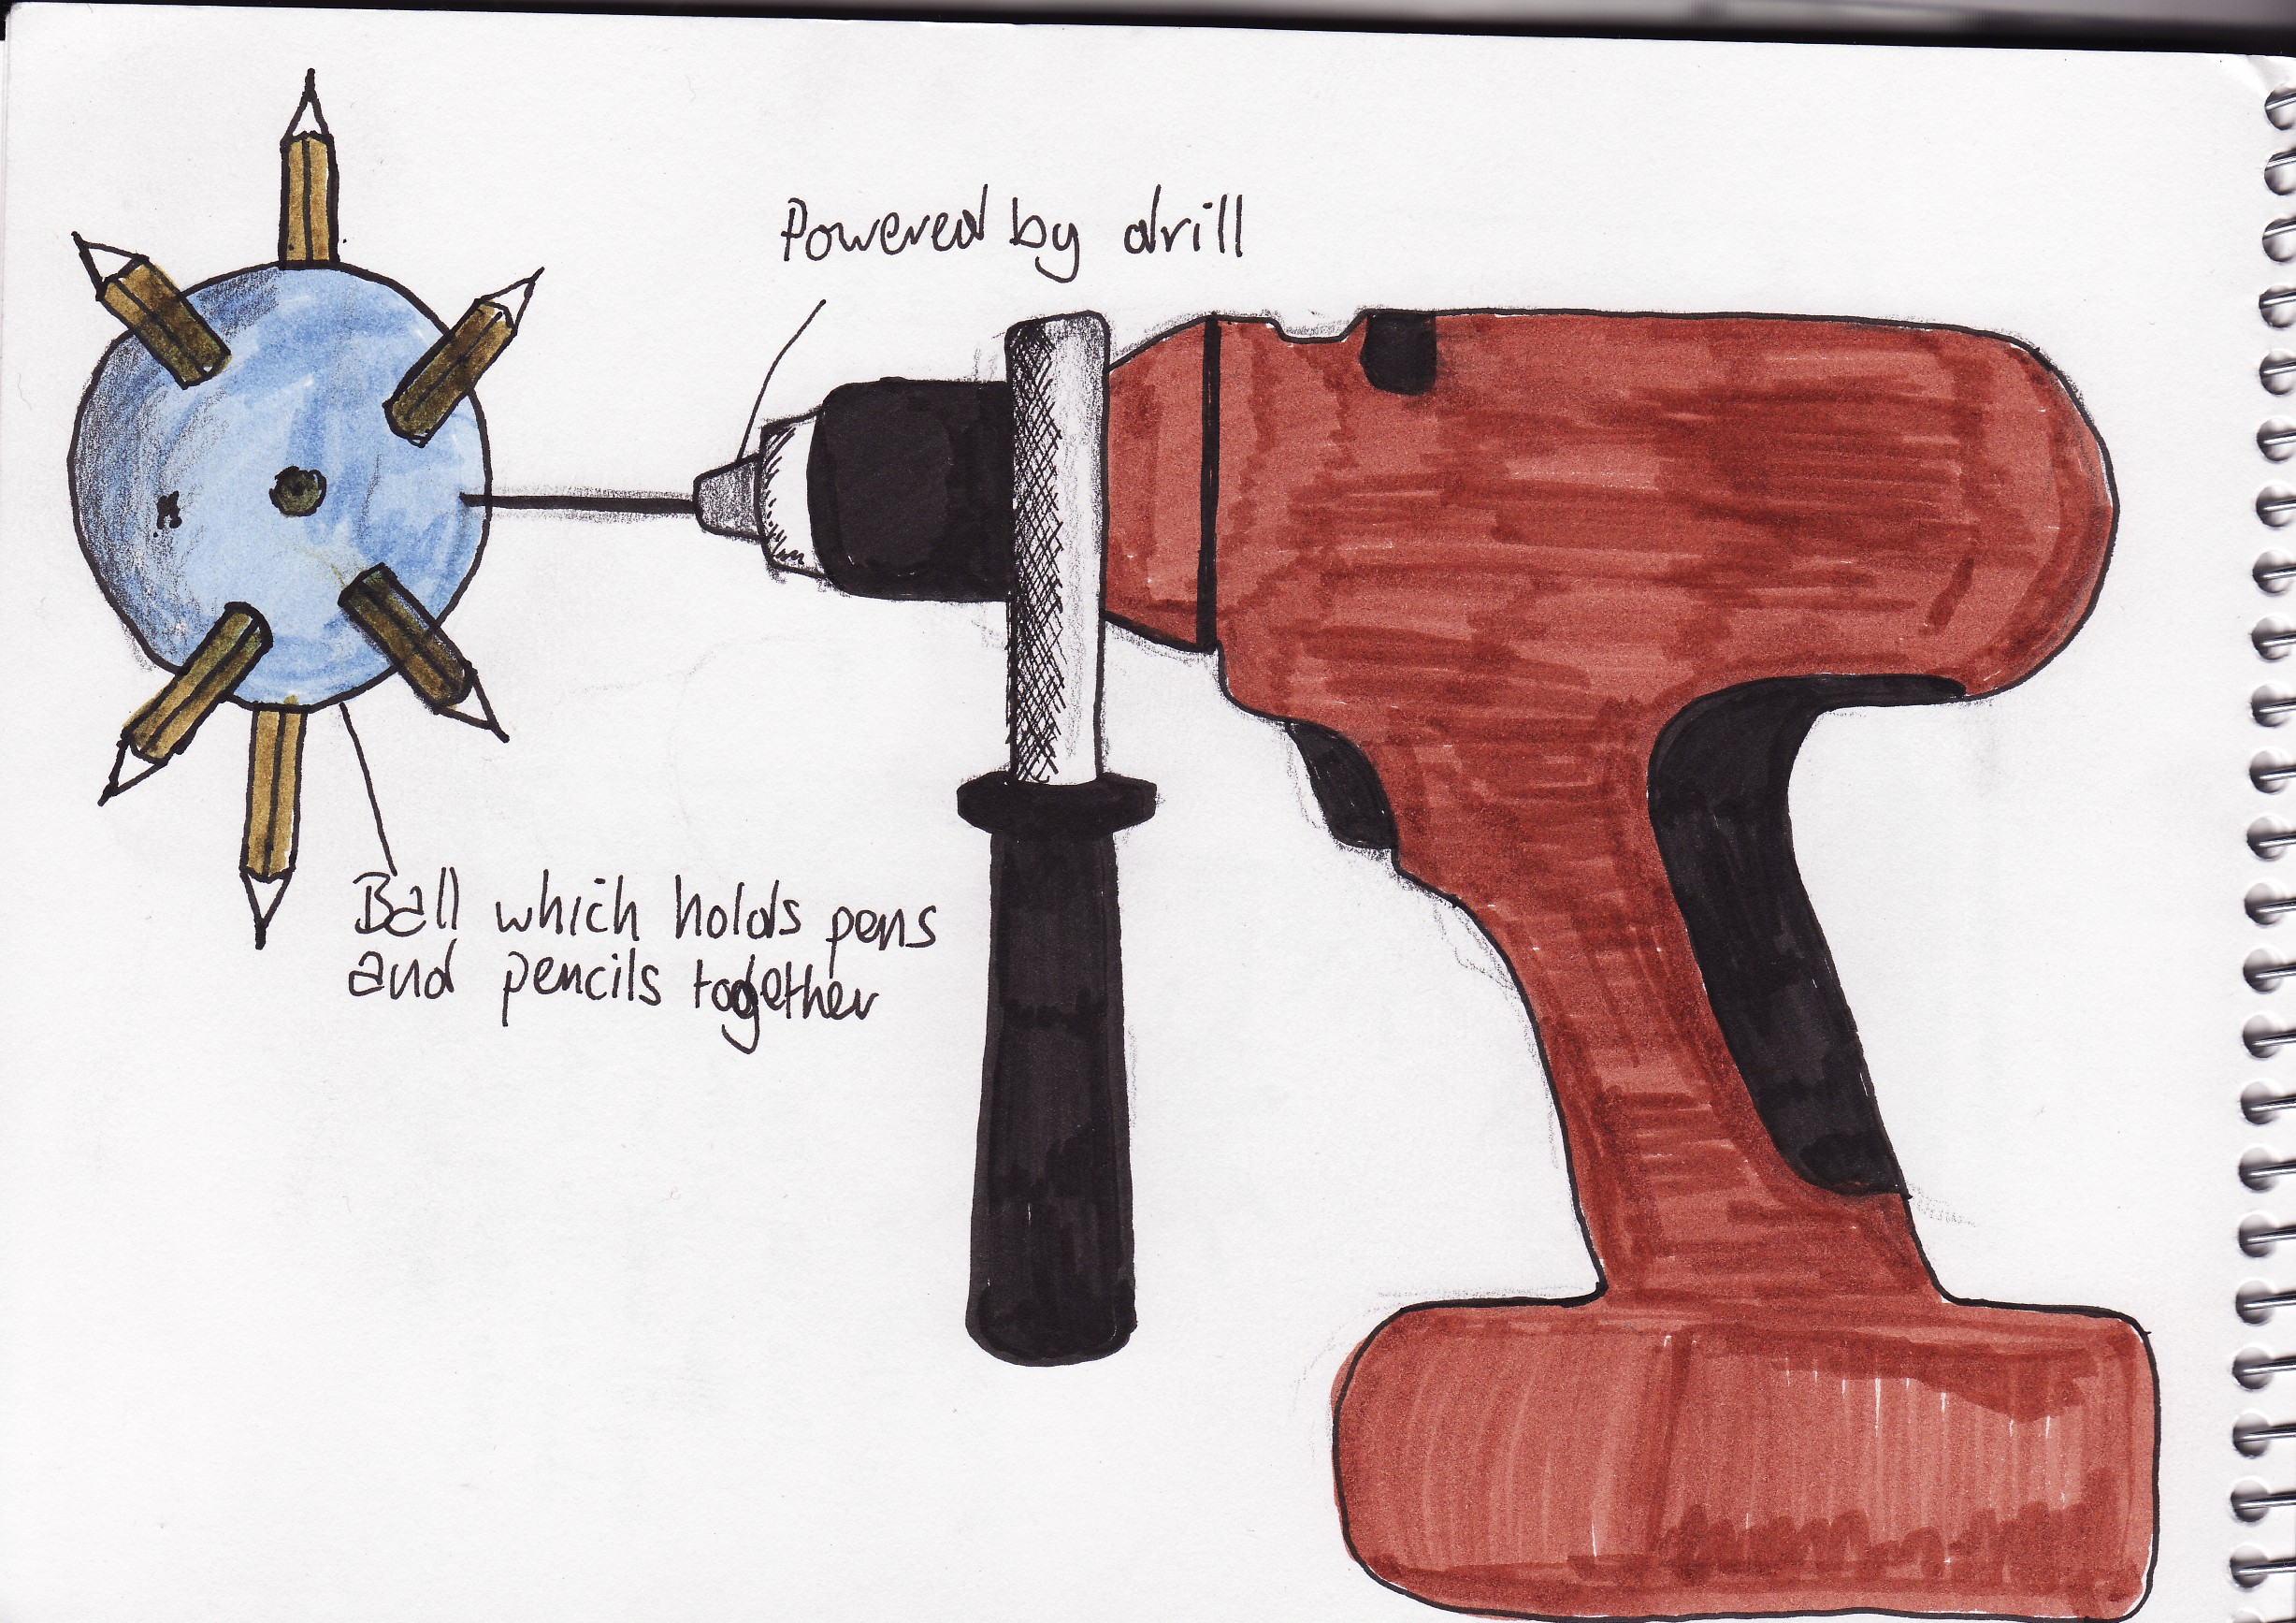 Powered by drill
Ball which holds pens
and pencils together